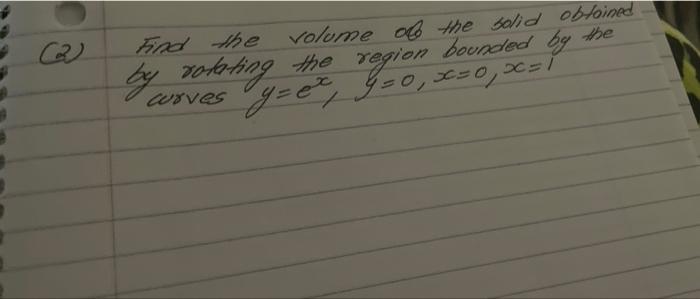 (2) Find the volume of the solid obtained
by rotating the region bounded by the
curves y=e^x, y=0, x=0, x=1